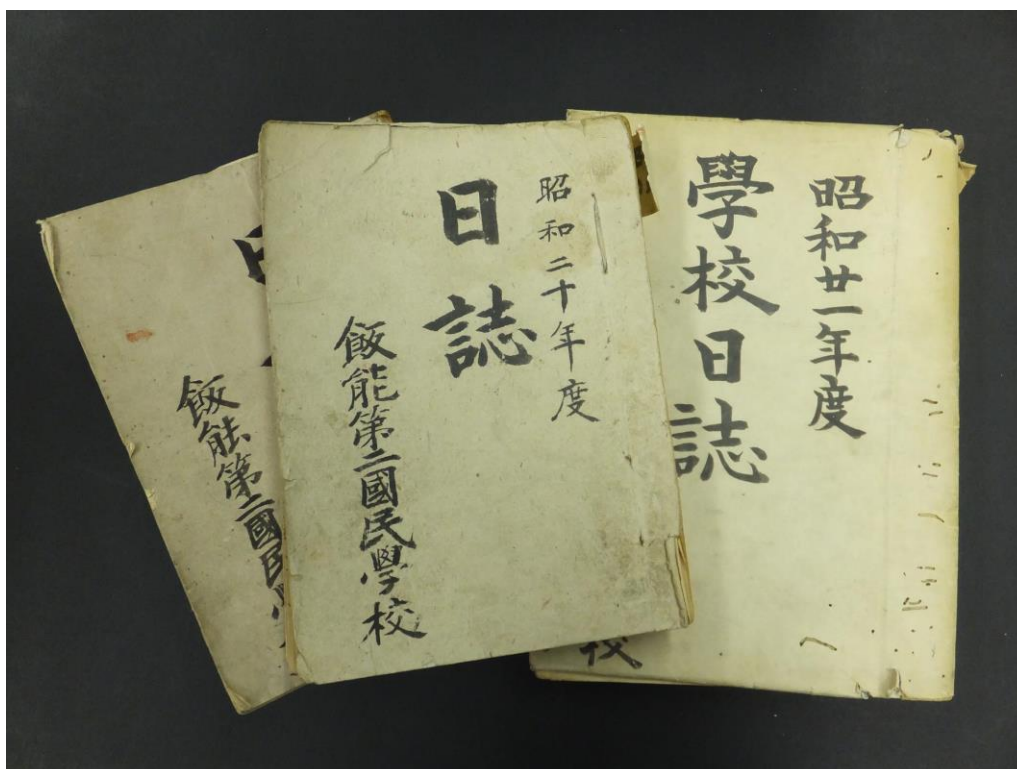 昭和廿一年度
學校日誌
昭和二十年度
日誌
飯能第二國民學校
飯能第二國民